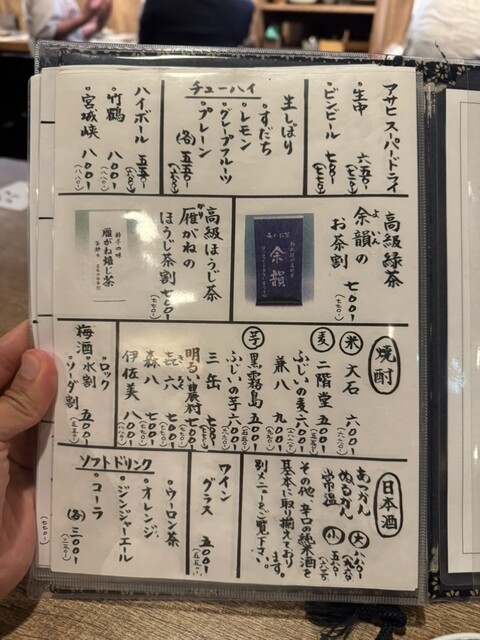 アサヒスーパードライ
・生中 六五〇-
・ビンビール 七〇〇-
チューハイ
生しぼり
・すだち
・レモン
・グレープフルーツ
・プレーン
(各) 五五〇-
ハイボール 五五〇-
・竹鶴 八〇〇-
(八八〇-)
・宮城峡 八〇〇-
(八八〇-)
高級緑茶
余韻の
お茶割 七〇〇-
(七七〇-)
余韻
高級ほうじ茶
雁がねの
ほうじ茶割 七〇〇-
(七七〇-)
雁がね焙じ茶
焼酎
米
大石 六〇〇-
麦
二階堂 五〇〇-
(五五〇-)
ふじいの麦 六〇〇-
兼八 九〇〇-
芋
黒霧島 五〇〇-
(五五〇-)
ふじいの芋 六〇〇-
三岳 七〇〇-
明るい農村 七〇〇-
㐂六 七〇〇-
森八 七〇〇-
伊佐美 八〇〇-
梅酒
・ロック
・水割
・ソーダ割
五〇〇-
(五五〇-)
日本酒
あつかん
ぬるかん
常温
大
小
その他、辛口の純米酒を
基本に取り揃えております。
別メニューをご覧下さい。
ワイン
グラス 五〇〇-
(五五〇-)
ソフトドリンク
・ウーロン茶
・オレンジ
・ジンジャーエール
・コーラ
(各) 三〇〇-
(三三〇-)